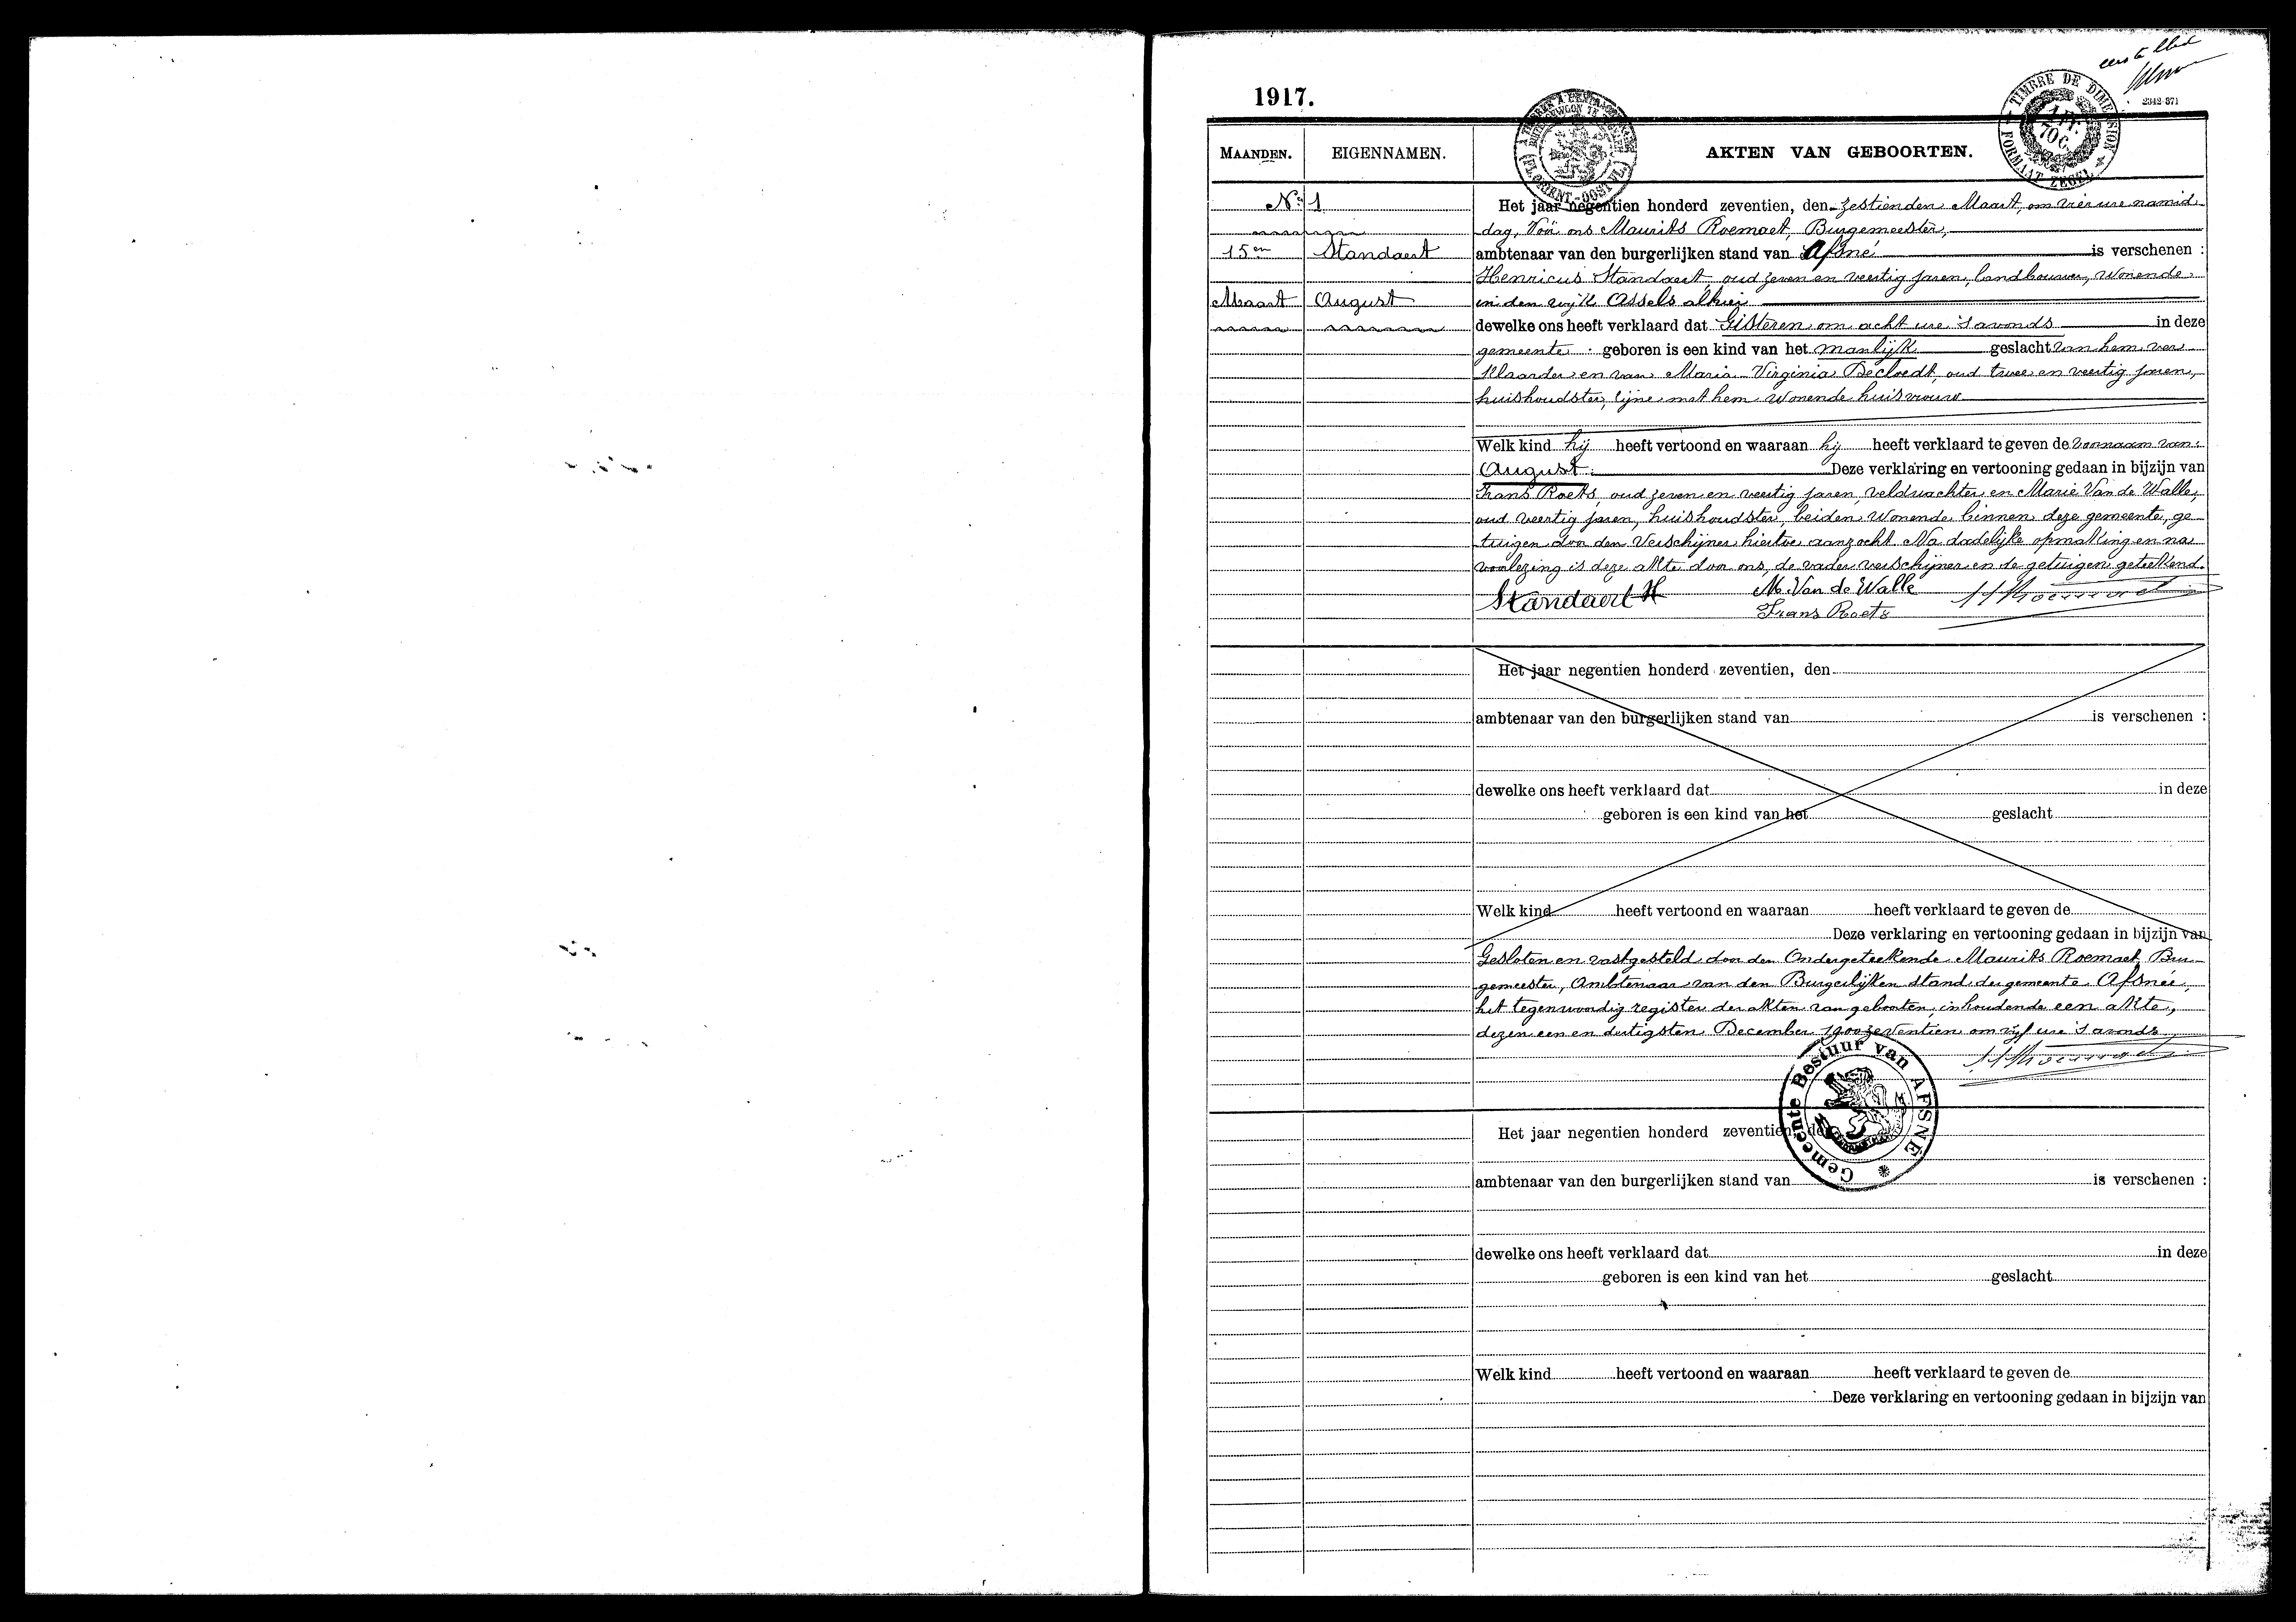 eerste blad
1917.
2342-871
TIMBRE DE DIMENSION
FORMAAT ZEGEL
1 Fr. 70 C.
MAANDEN. EIGENNAMEN. AKTEN VAN GEBOORTEN.
No 1 Het jaar negentien honderd zeventien, den zestienden Maart, om vier ure namid
dag, Voor ons Maurits Roemaet, Burgemeester,
15en Standaert ambtenaar van den burgerlijken stand van Afsné is verschenen :
Henricus Standaert, oud zeven en veertig jaren, landbouwer, wonende
Maart August in den wijk Assels alhier
dewelke ons heeft verklaard dat Gisteren om acht ure 's avonds in deze
gemeente geboren is een kind van het manlijk geslacht van hem ver
klaarder en van Maria Virginia Decloedt, oud twee en veertig jaren,
huishoudster, zijne met hem wonende huisvrouw
Welk kind hij heeft vertoond en waaraan hij heeft verklaard te geven de voornaam van
August. Deze verklaring en vertooning gedaan in bijzijn van
Frans Roets, oud zeven en veertig jaren, veldwachter en Marie Van de Walle,
oud veertig jaren, huishoudster, beiden wonende binnen deze gemeente, ge
tuigen door den Verschijner hiertoe aanzocht. Na dadelijke opmaking en na
voorlezing is deze akte door ons, de vader verschijner en de getuigen geteekend.
Standaert H M. Van de Walle MRoemaet
Frans Roets
Het jaar negentien honderd zeventien, den
ambtenaar van den burgerlijken stand van is verschenen :
dewelke ons heeft verklaard dat in deze
geboren is een kind van het geslacht
Welk kind heeft vertoond en waaraan heeft verklaard te geven de
Deze verklaring en vertooning gedaan in bijzijn van
Gesloten en vastgesteld door den Ondergeteekende Maurits Roemaet Bur
gemeester, Ambtenaar van den Burgerlijken stand der gemeente Afsnée,
het tegenwoordig register der akten van geboorten, inhoudende een akte,
dezen een en dertigsten December 1900 zeventien om vijf ure 's avonds
MRoemaet
Gemeente Bestuur van AFSNÉ
Het jaar negentien honderd zeventien, den
ambtenaar van den burgerlijken stand van is verschenen :
dewelke ons heeft verklaard dat in deze
geboren is een kind van het geslacht
Welk kind heeft vertoond en waaraan heeft verklaard te geven de
Deze verklaring en vertooning gedaan in bijzijn van